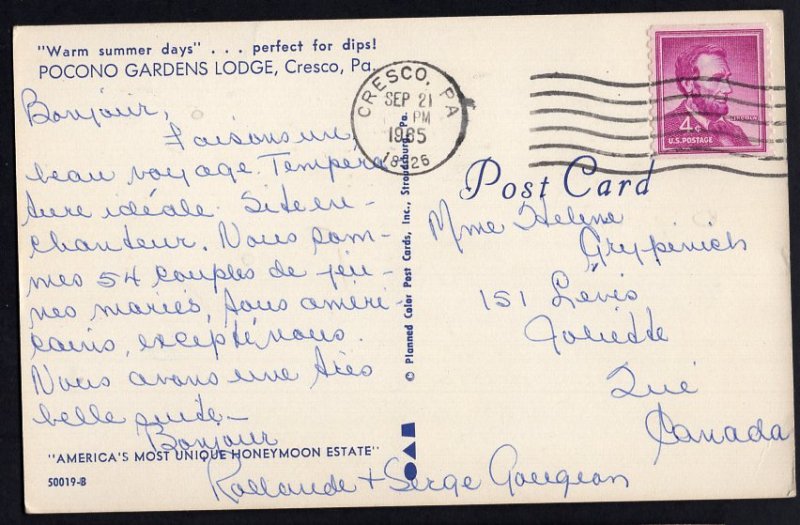 "Warm summer days" . . . perfect for dips!
POCONO GARDENS LODGE, Cresco, Pa.
Bonjour,
Faisons un
beau voyage. Tempéra
ture idéale. Site en-
chanteur. Nous som-
mes 54 couples de jeu-
nes mariés, tous améri-
cains, excepté nous.
Nous avons une très
belle suite-
Bonjour
Rollande + Serge Gougeon
"AMERICA'S MOST UNIQUE HONEYMOON ESTATE"
50019-B
© Planned Color Post Cards, Inc., Stroudsburg, Pa.
CRESCO, PA
SEP 21
PM
1965
18326
4¢
LINCOLN
U.S. POSTAGE
Post Card
Mme Helene
Grypinich
151 Lévis
Joliette
Qué
Canada